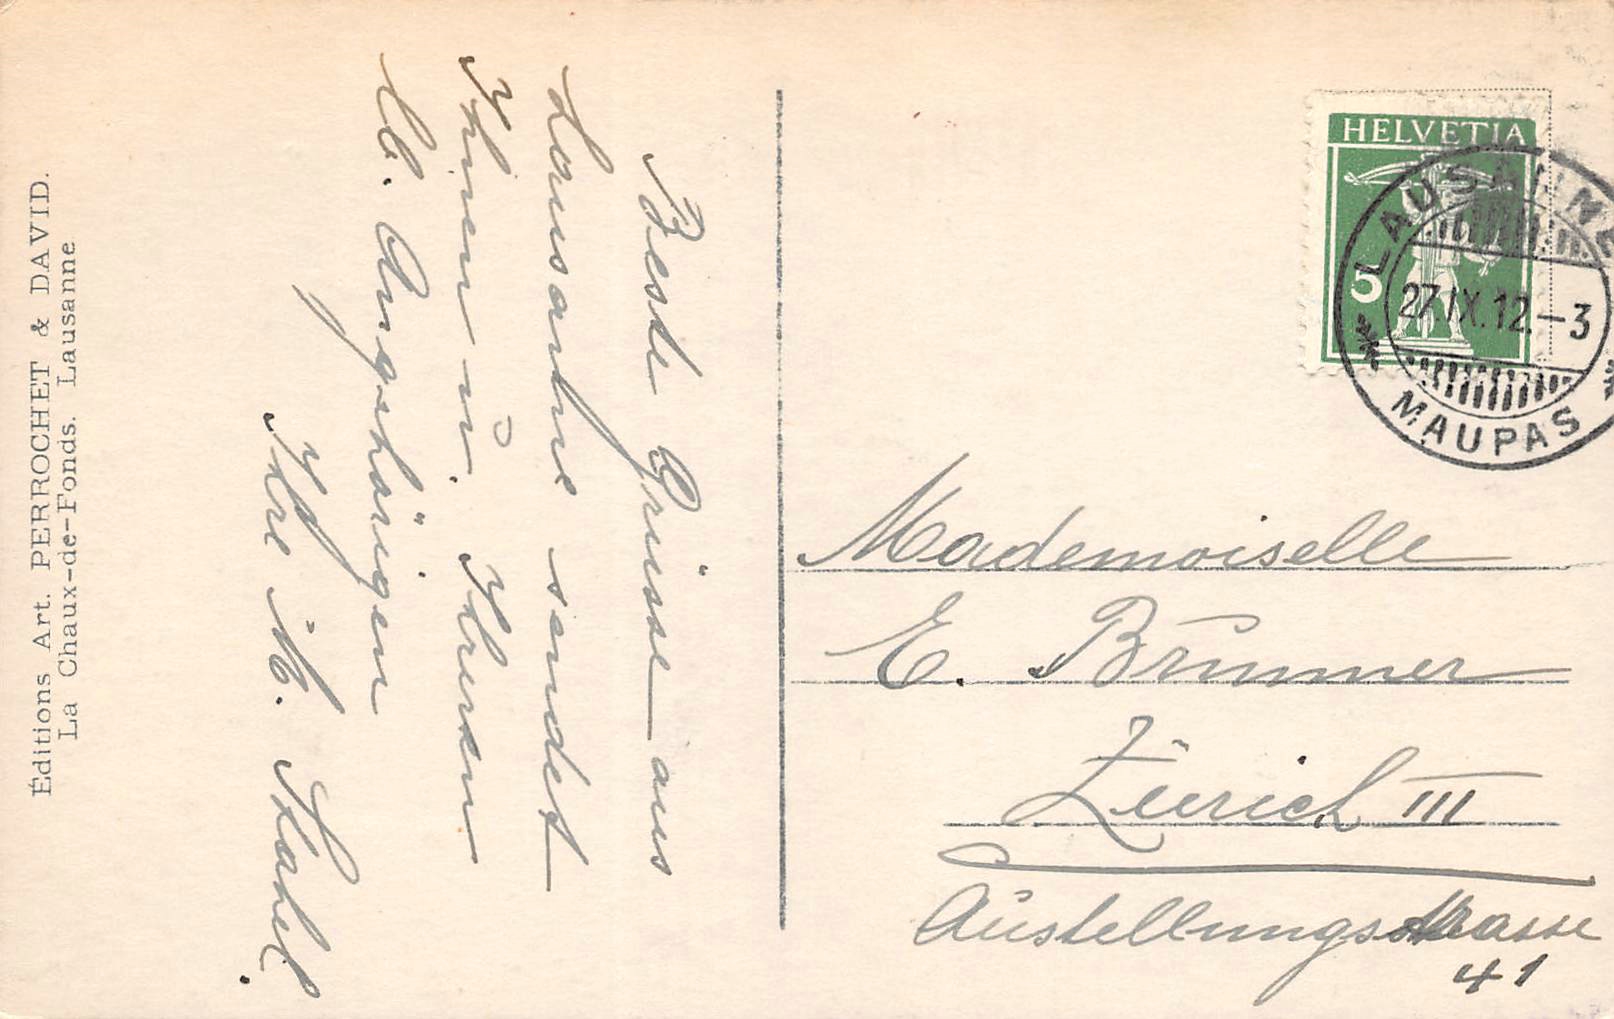 Éditions Art. PERROCHET & DAVID.
La Chaux-de-Fonds. Lausanne
Beste Grüsse aus
Lausanne sendet
Ihnen u. Ihren
lb. Angehörigen
Ihre M. Stahel.
HELVETIA
5
LAUSANNE
27.IX.12.-3
MAUPAS
Mademoiselle
E. Brunner
Zürich III
Austellungsstrasse
41